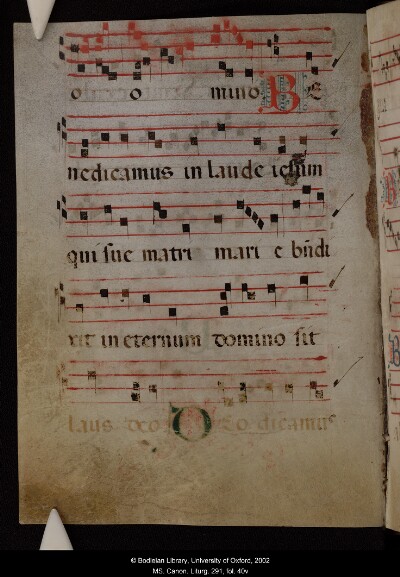 o o mino Be
nedicamus in laude iesum
qui sue matri mari e bñdi
xit in eternum domino sit
laus deo
© Bodleian Library, University of Oxford, 2002
MS. Canon. Liturg. 291, fol. 40v